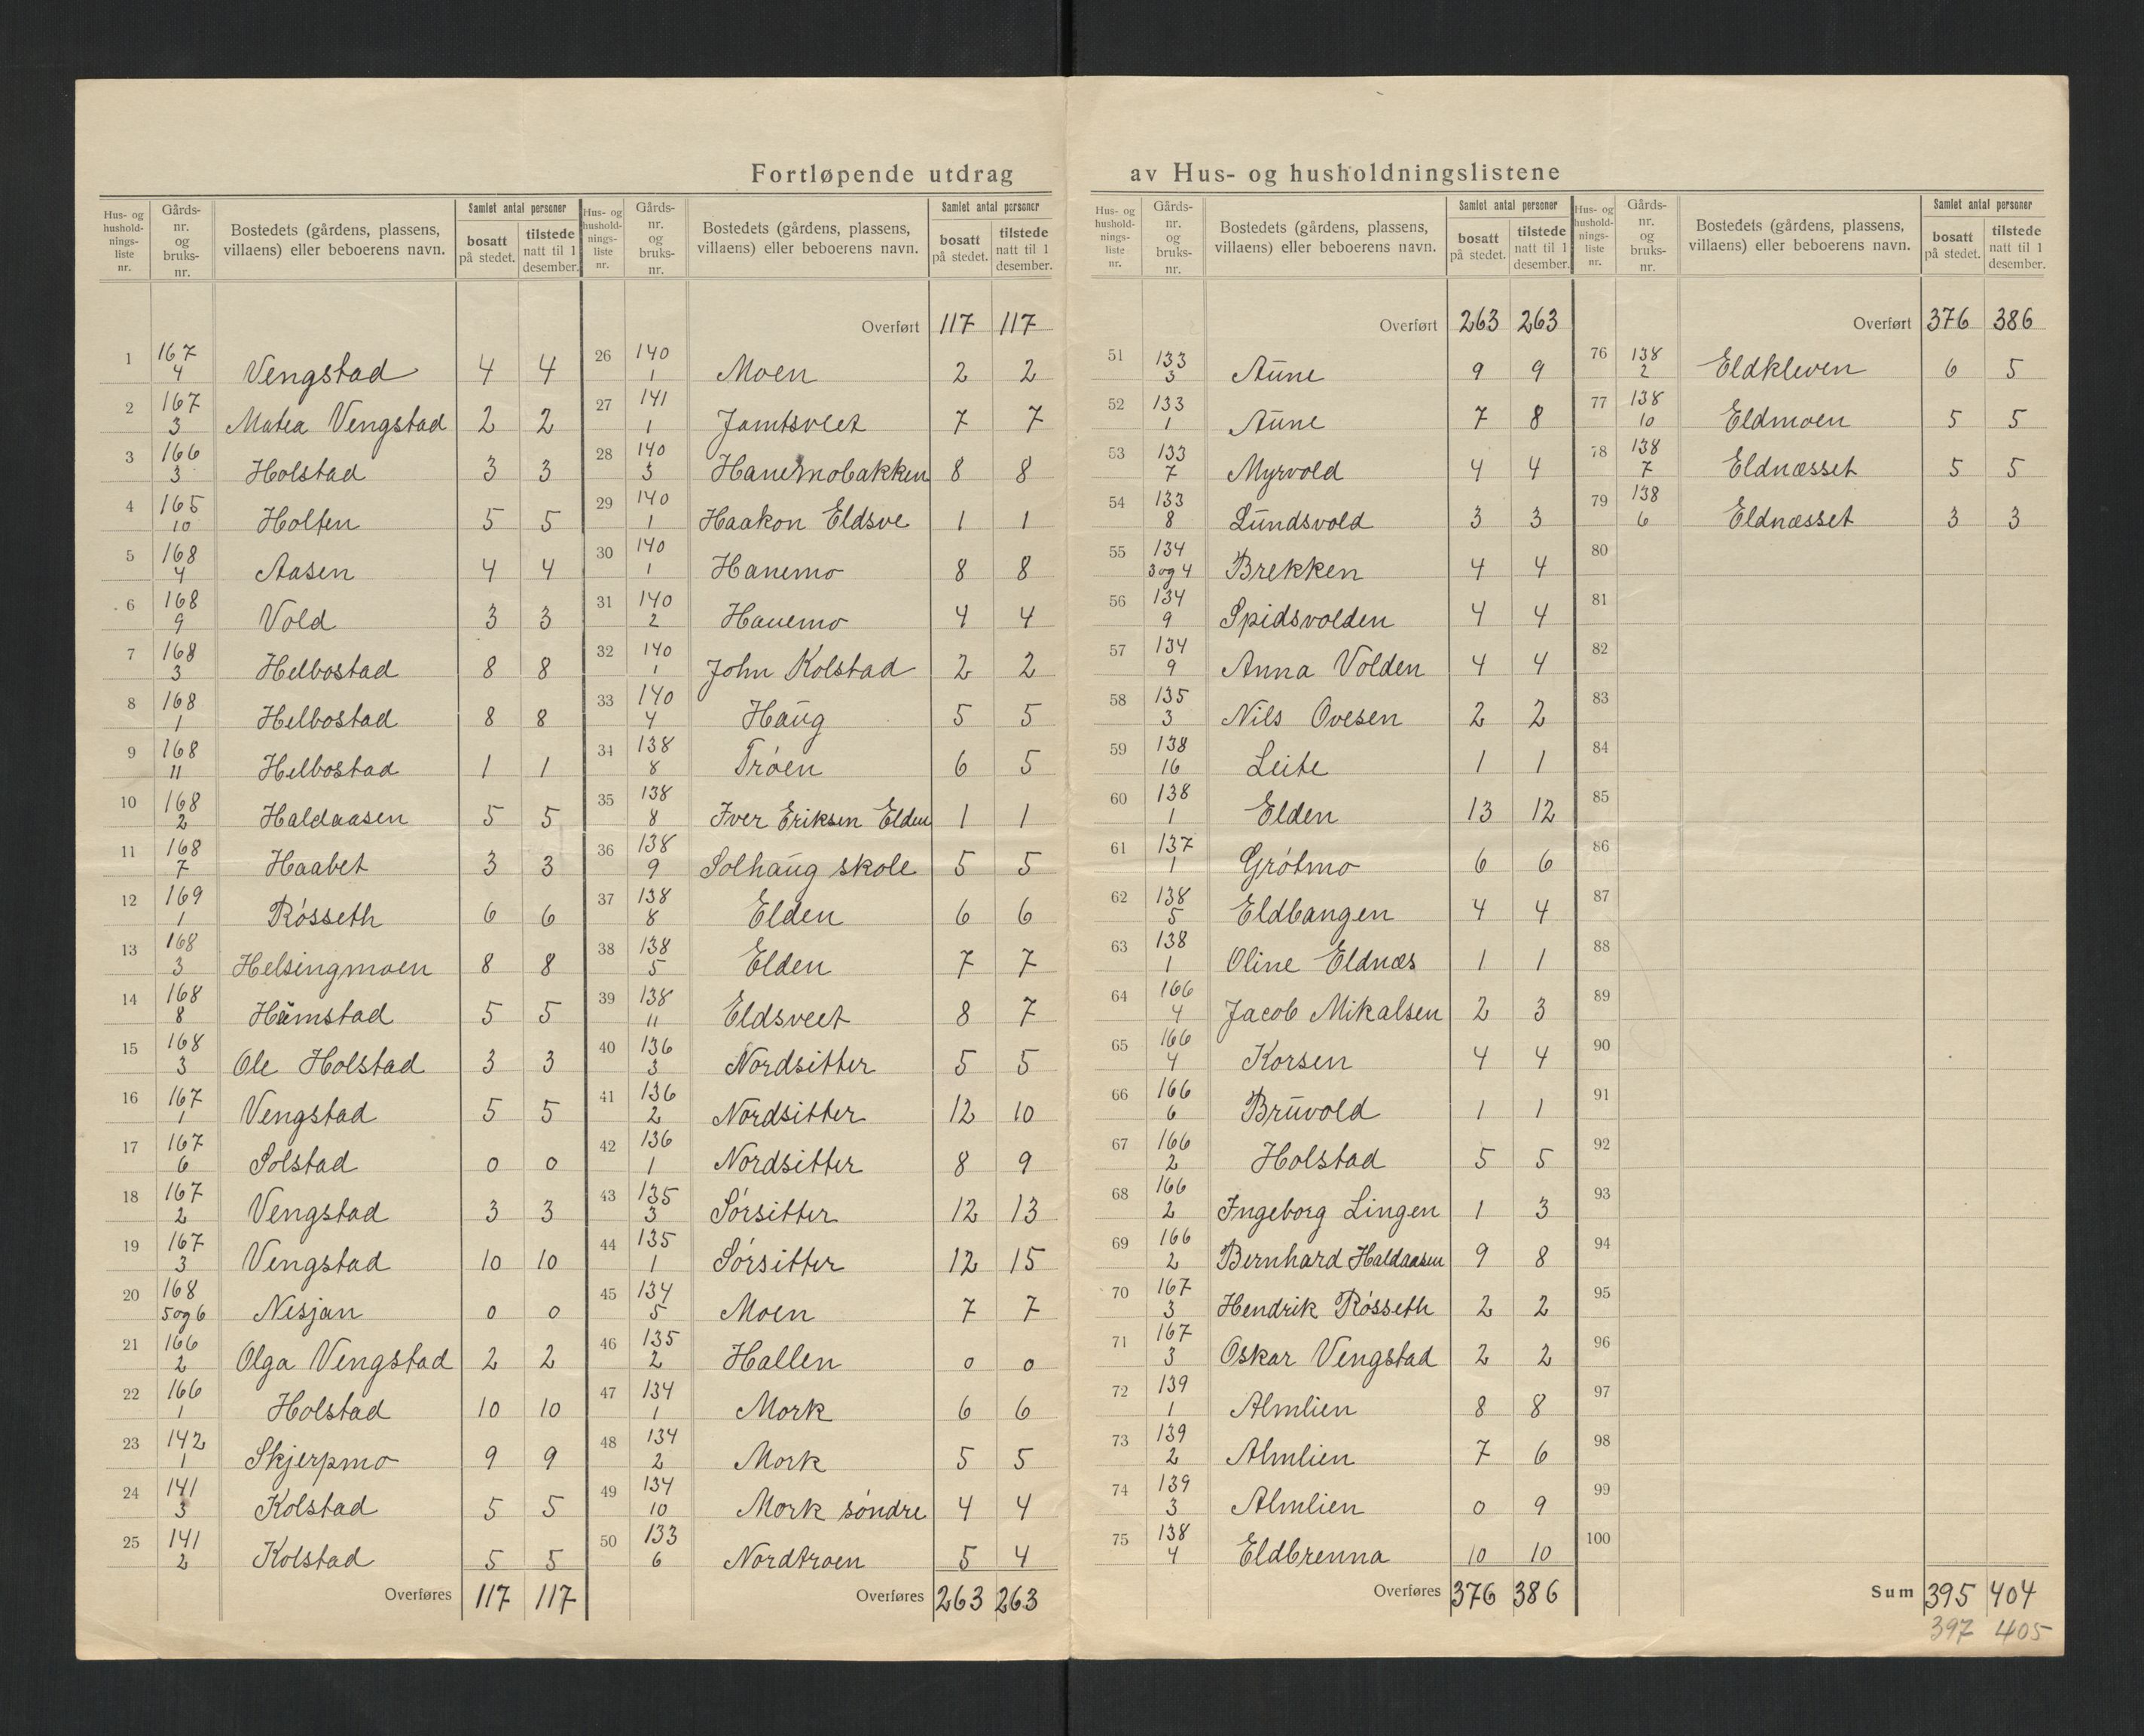 Fortløpende utdrag av Hus- og husholdningslistene
Hus- og hushold-nings-liste nr. Gårds-nr. og bruks-nr. Bostedets (gårdens, plassens, villaens) eller beboerens navn. Samlet antal personer bosatt på stedet. tilstede natt til 1 desember.
1 167/4 Vengstad 4 4
2 167/3 Matea Vengstad 2 2
3 166/3 Holstad 3 3
4 165/10 Holten 5 5
5 168/4 Aasen 4 4
6 168/9 Vold 3 3
7 168/3 Helbostad 8 8
8 168/1 Helbostad 8 8
9 168/11 Helbostad 1 1
10 168/2 Haldaasen 5 5
11 168/7 Haabet 3 3
12 169/1 Røsseth 6 6
13 168/3 Helsingmoen 8 8
14 168/8 Hamstad 5 5
15 168/3 Ole Holstad 3 3
16 167/1 Vengstad 5 5
17 167/6 Solstad 0 0
18 167/2 Vengstad 3 3
19 167/3 Vengstad 10 10
20 168/5 og 6 Nesjan 0 0
21 166/2 Olga Vengstad 2 2
22 166/1 Holstad 10 10
23 142/1 Skjerpmo 9 9
24 141/3 Kolstad 5 5
25 141/2 Kolstad 5 5
Overføres 117 117
Hus- og hushold-nings-liste nr. Gårds-nr. og bruks-nr. Bostedets (gårdens, plassens, villaens) eller beboerens navn. Samlet antal personer bosatt på stedet. tilstede natt til 1 desember.
Overført 117 117
26 140/1 Moen 2 2
27 141/1 Jamtsveet 7 7
28 140/3 Hanemobakken 8 8
29 140/1 Haakon Eldsve 1 1
30 140/1 Hanemo 8 8
31 140/2 Hanemo 4 4
32 140/1 John Kolstad 2 2
33 140/4 Haug 5 5
34 138/8 Trøen 6 5
35 138/8 Iver Eriksen Elden 1 1
36 138/9 Solhaug skole 5 5
37 138/8 Elden 6 6
38 138/5 Elden 7 7
39 138/11 Eldsveet 8 7
40 136/3 Nordsitter 5 5
41 136/2 Nordsitter 12 10
42 136/1 Nordsitter 8 9
43 135/3 Sørsitter 12 13
44 135/1 Sørsitter 12 15
45 134/5 Moen 7 7
46 135/2 Hallen 0 0
47 134/1 Mork 6 6
48 134/2 Mork 5 5
49 134/10 Mork søndre 4 4
50 133/6 Nordtroen 5 4
Overføres 263 263
Hus- og hushold-nings-liste nr. Gårds-nr. og bruks-nr. Bostedets (gårdens, plassens, villaens) eller beboerens navn. Samlet antal personer bosatt på stedet. tilstede natt til 1 desember.
Overført 263 263
51 133/3 Aune 9 9
52 133/1 Aune 7 8
53 133/7 Myrvold 4 4
54 133/8 Lundsvold 3 3
55 134/3 og 4 Brekken 4 4
56 134/9 Spidsvolden 4 4
57 134/9 Anna Volden 4 4
58 135/3 Nils Ovesen 2 2
59 138/16 Leite 1 1
60 138/1 Elden 13 12
61 137/1 Grøtmo 6 6
62 138/5 Eldbangen 4 4
63 138/1 Oline Eldnæs 1 1
64 166/4 Jacob Mikalsen 2 3
65 166/4 Korsen 4 4
66 166/6 Bruvold 1 1
67 166/2 Holstad 5 5
68 166/2 Ingeborg Lingen 1 3
69 166/2 Bernhard Haldaasen 9 8
70 167/3 Hendrik Røsseth 2 2
71 167/3 Oskar Vengstad 2 2
72 139/1 Almlien 8 8
73 139/2 Almlien 7 6
74 139/3 Almlien 0 9
75 138/4 Eldbrenna 10 10
Overføres 376 386
Hus- og hushold-nings-liste nr. Gårds-nr. og bruks-nr. Bostedets (gårdens, plassens, villaens) eller beboerens navn. Samlet antal personer bosatt på stedet. tilstede natt til 1 desember.
Overført 376 386
76 138/2 Eldkleven 6 5
77 138/10 Eldmoen 5 5
78 138/7 Eldnæsset 5 5
79 138/6 Eldnæsset 3 3
80
81
82
83
84
85
86
87
88
89
90
91
92
93
94
95
96
97
98
99
100
Sum 395 404
397 405